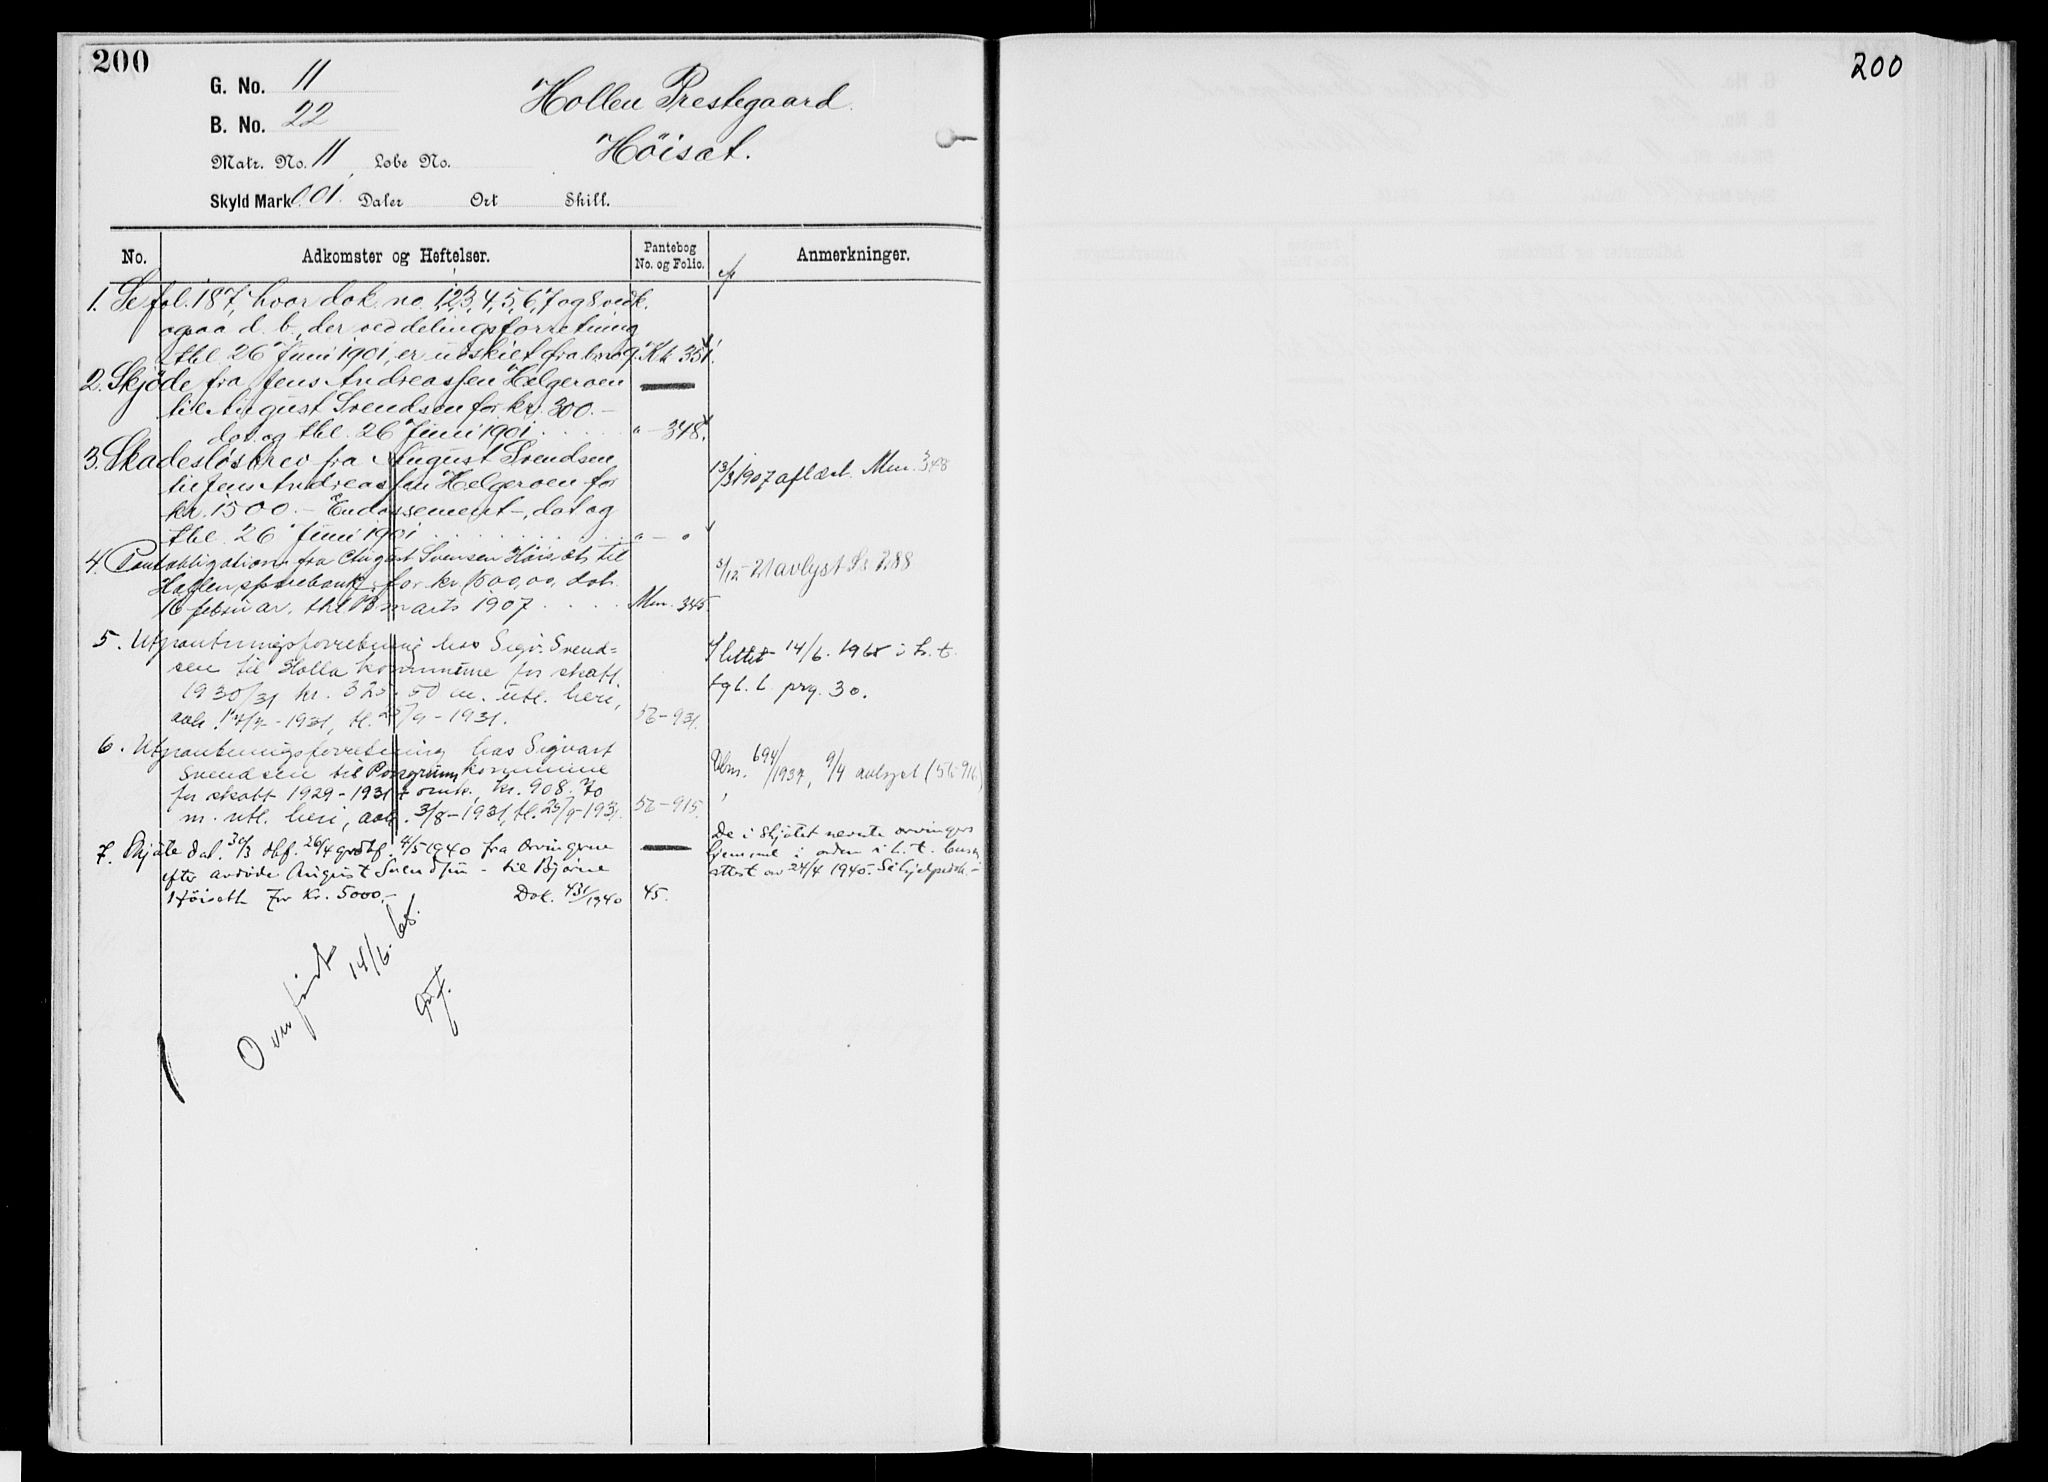 200
G. No. 11
B. No. 22
Matr. No. 11, Løbe No.
Skyld Mark 0.01. Daler Ort Skill.
Hollen Prestegaard.
Höisæt.
No. Adkomster og Heftelser. Pantebog No. og Folio. Anmerkninger.
1. Se fol. 187, hvor dok. no. 1, 2, 3, 4, 5, 6, 7 og 8 vedk.
ogsaa d. b., der ved delingsforretning
thl. 26 Juni 1901, er udskilt fra b. no 9. Kk 351.
2. Skjöde fra Jens Andreassen Helgeroen
til August Svendsen for kr. 300.–
dat. og thl. 26 Juni 1901. . . . " – 348.
3. Skadeslösbrev fra August Svendsen
til Jens Andreassen Helgeroen for
kr. 1500.– Endossement –, dat og
thl. 26 Juni 1901 . . . . " – "
13/3 1907 aflæst. Mm. 348
4. Pantobligation fra August Svensen Höisæt, til
Hollen sparebank, for kr 1500,00, dat.
16 februar, thl 13 marts 1907 . . . . Mm. 345.
3/12–21 avlyst Ss 288
5. Utpantningsforretning hos Sigv. Svend=
sen til Holla kommune for skatt
1930/31 kr. 325.50 m. utl. heri,
avh. 17/7–1931, tl. 23/9–1931. 56–931.
Slettet 14/6. 1968 i h. t.
tgl. l. prg. 30.
6. Utpantningsforretning hos Sigvart
Svendsen til Porsgrunn kommune
for skatt 1929–1931 + omk. kr. 908.70
m. utl. heri, avh. 3/8–1931, tl. 23/9–1931. 56–915.
Dbnr. 694/1937, 9/4 avlyst (56–916)
7. Skjöte dat. 30/3 dbf. 26/4 grdbf. 4/5 1940 fra Arvingerne
efter avdöde August Svendsen – til Bjarne
Höiseth for Kr. 5000,– Dok. 431/1940 45.
De i skjötet nevnte arvingers
hjemmel i orden i h. t.
attest av 24/4 1940. Se hjelpedok.–
Overfört 14/6. 68.
200